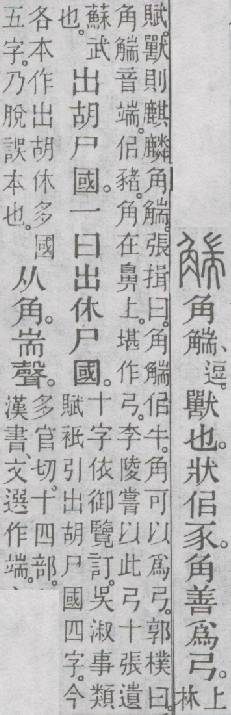 角䚗、逗。獸也。狀侣豕。角善爲弓。上林
賦。獸則麒麟角䚗。張揖曰。角䚗侣牛。角可以爲弓。郭樸曰。
角䚗音端。侣豬。角在鼻上。堪作弓。李陵嘗以此弓十張遺
蘇武也。出胡尸國。一曰出休尸國。十字依御覽訂。吳淑事類賦衹引出胡尸國四字。今
各本作出胡休多國五字。乃脫誤本也。从角。耑聲。多官切。十四部。漢書、文選作端。